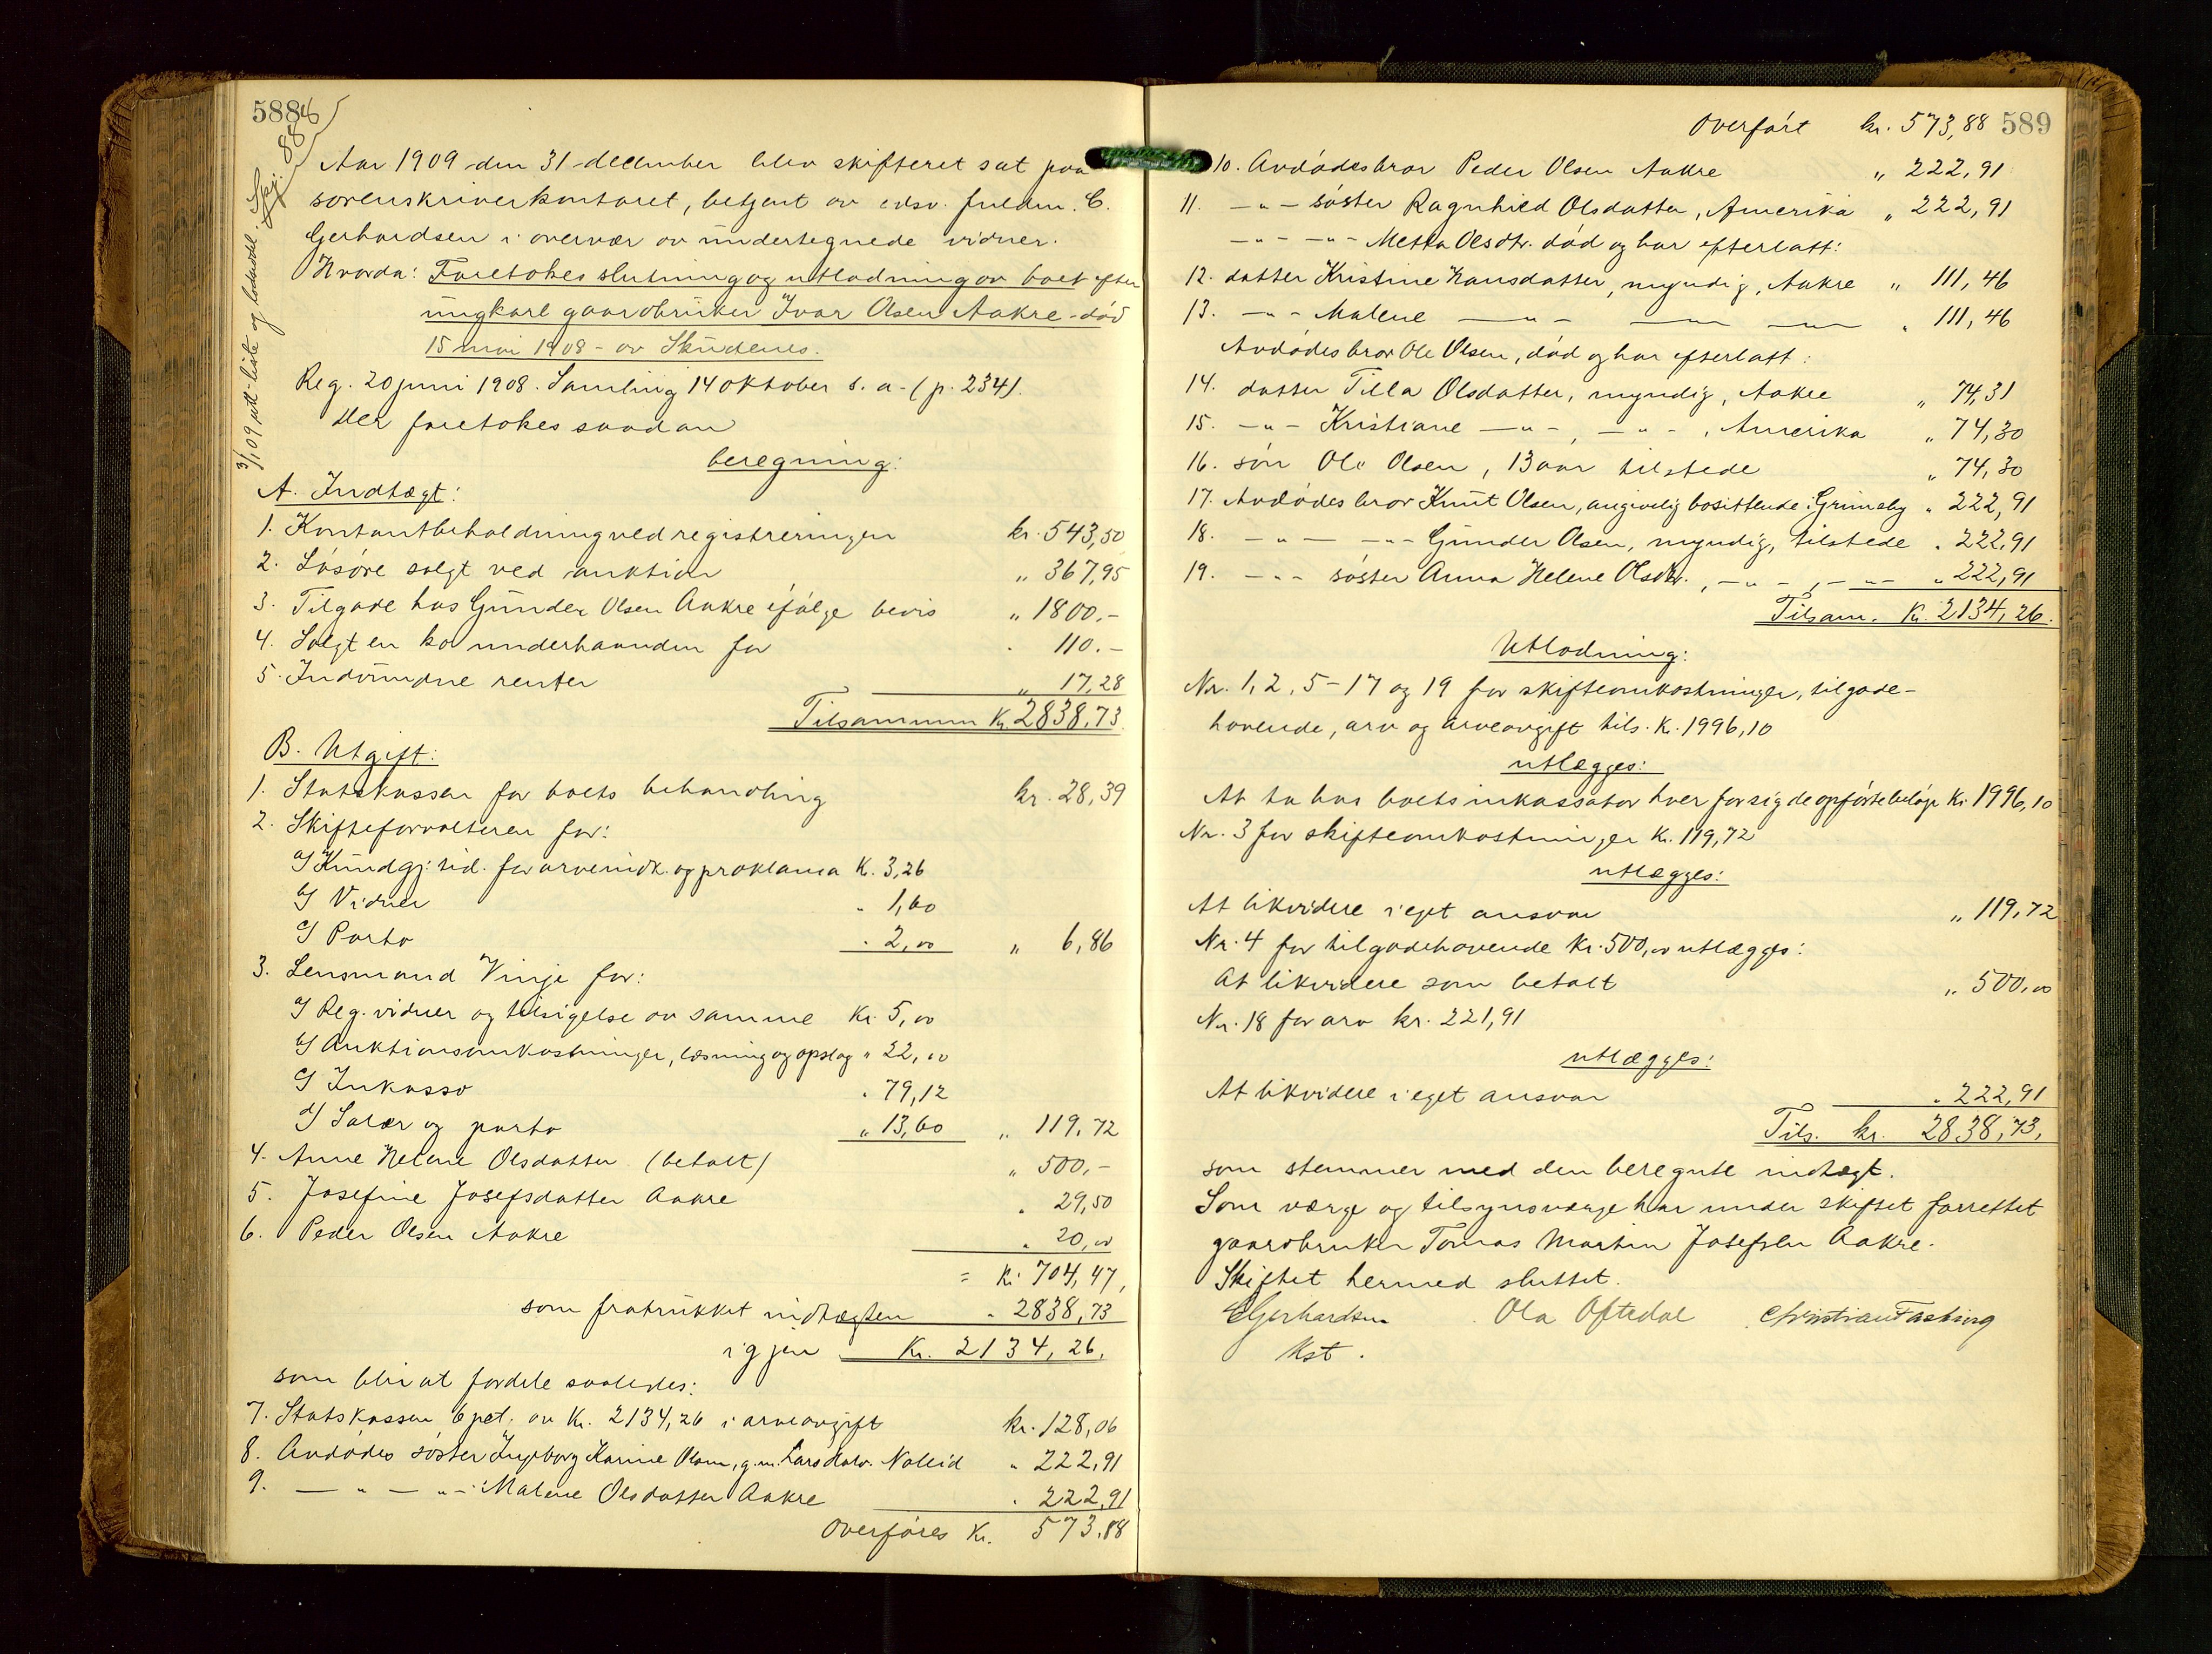 588
Aar 1909 den 31 december blev skifteret sat paa
sorenskriverkontoret, betjent av edsv. fuldm. C.
Gerhardsen i overvær av undertegnede vidner.
Hvorda: Foretokes slutning og utlodning av boet efter
ungkarl gaardbruker Ivar Olsen Aakre - død
15 mai 1908 - av Skudenes.
Reg. 20 juni 1908. Samling 14 oktober s. a. (p. 234).
Der foretokes saadan
beregning:
A. Indtægt:
1. Kontantbeholdning ved registreringen kr. 543,50
2. Løsøre solgt ved auktion " 367,95
3. Tilgode hos Gunder Olsen Aakre ifølge bevis " 1800.-
4. Solgt en ko underhaanden for " 110.-
5. Indvundne renter " 17,28
Tilsammen Kr. 2838,73.
B. Utgift:
1. Statskassen for boets behandling kr. 28,39
2. Skifteforvalteren for:
a/ Kundgj. tid. for arveindk. og proklama K. 3,26
b/ Vidner " 1,60
c/ Porto " 2,00 " 6,86
3. Lensmand Vinje for:
a/ Reg. vidner og tilsigelse av samme Kr. 5,00
b/ Auktionsomkostninger, læsning og opslag " 22,00
c/ Inkasso " 79,12
d/ Salær og porto " 13,60 " 119,72
4. Anne Helene Olsdatter (betalt) " 500,-
5. Josefine Josefsdatter Aakre " 29,50
6. Peder Olsen Aakre " 20,00
= Kr. 704,47,
som fratrukket indtægten " 2838,73
igjen Kr. 2134,26.
som blir at fordele saaledes:
7. Statskassen 6 pct. av Kr. 2134,26 i arveavgift kr. 128,06
8. Avdødes søster Ingeborg Karine Olsen, g. m. Lars Nolleid " 222,91
9. — " — " —: Malene Olsdatter Aakre " 222,91
Overføres Kr. 573,88
Overført kr. 573,88 589
10. Avdødes bror Peder Olsen Aakre " 222,91
11. — " — søster Ragnhild Olsdatter, Amerika " 222,91
— " — — " — Metta Olsdtr. død og har efterlatt:
12. datter Kristine Hansdatter, myndig, Aakre " 111,46
13. — " — Malene — " — — " — — " — " 111,46
Avdødes bror Ole Olsen, død og har efterlatt:
14. datter Tilla Olsdatter, myndig, Aakre " 74,31
15. — " — Kristiane — " —, — " —, Amerika " 74,30
16. søn Ole Olsen, 13 aar tilstede " 74,30
17. Avdødes bror Knut Olsen, angivelig bosittende i Grimsby " 222,91
18. — " — — " — Gunder Olsen, myndig, tilstede " 222,91
19. — " — søster Anna Helene Olsdtr., — " —, — " — " 222,91
Tilsam. Kr. 2134,26.
Utlodning:
Nr. 1, 2, 5-17 og 19 for skifteomkostninger, tilgode-
havende, arv og arveavgift tils. K. 1996,10
utlægges:
At ta hos boets inkassator hver for sig de opførte beløp Kr. 1996,10
Nr. 3 for skifteomkostninger Kr. 119,72
utlægges:
At likvidere i eget ansvar " 119,72
Nr. 4 for tilgodehavende Kr. 500,00 utlægges:
At likvidere som betalt " 500,00
Nr. 18 for arv kr. 221,91
utlægges:
At likvidere i eget ansvar " 222,91
Tils. kr. 2838,73,
som stemmer med den beregnte indtægt.
Som værge og tilsynsværge har under skiftet forrettet
gaardbruker Tomas Martin Josefsen Aakre.
Skiftet hermed sluttet.
CGerhardsen Ola Oftedal Christian Fasting
Kst.